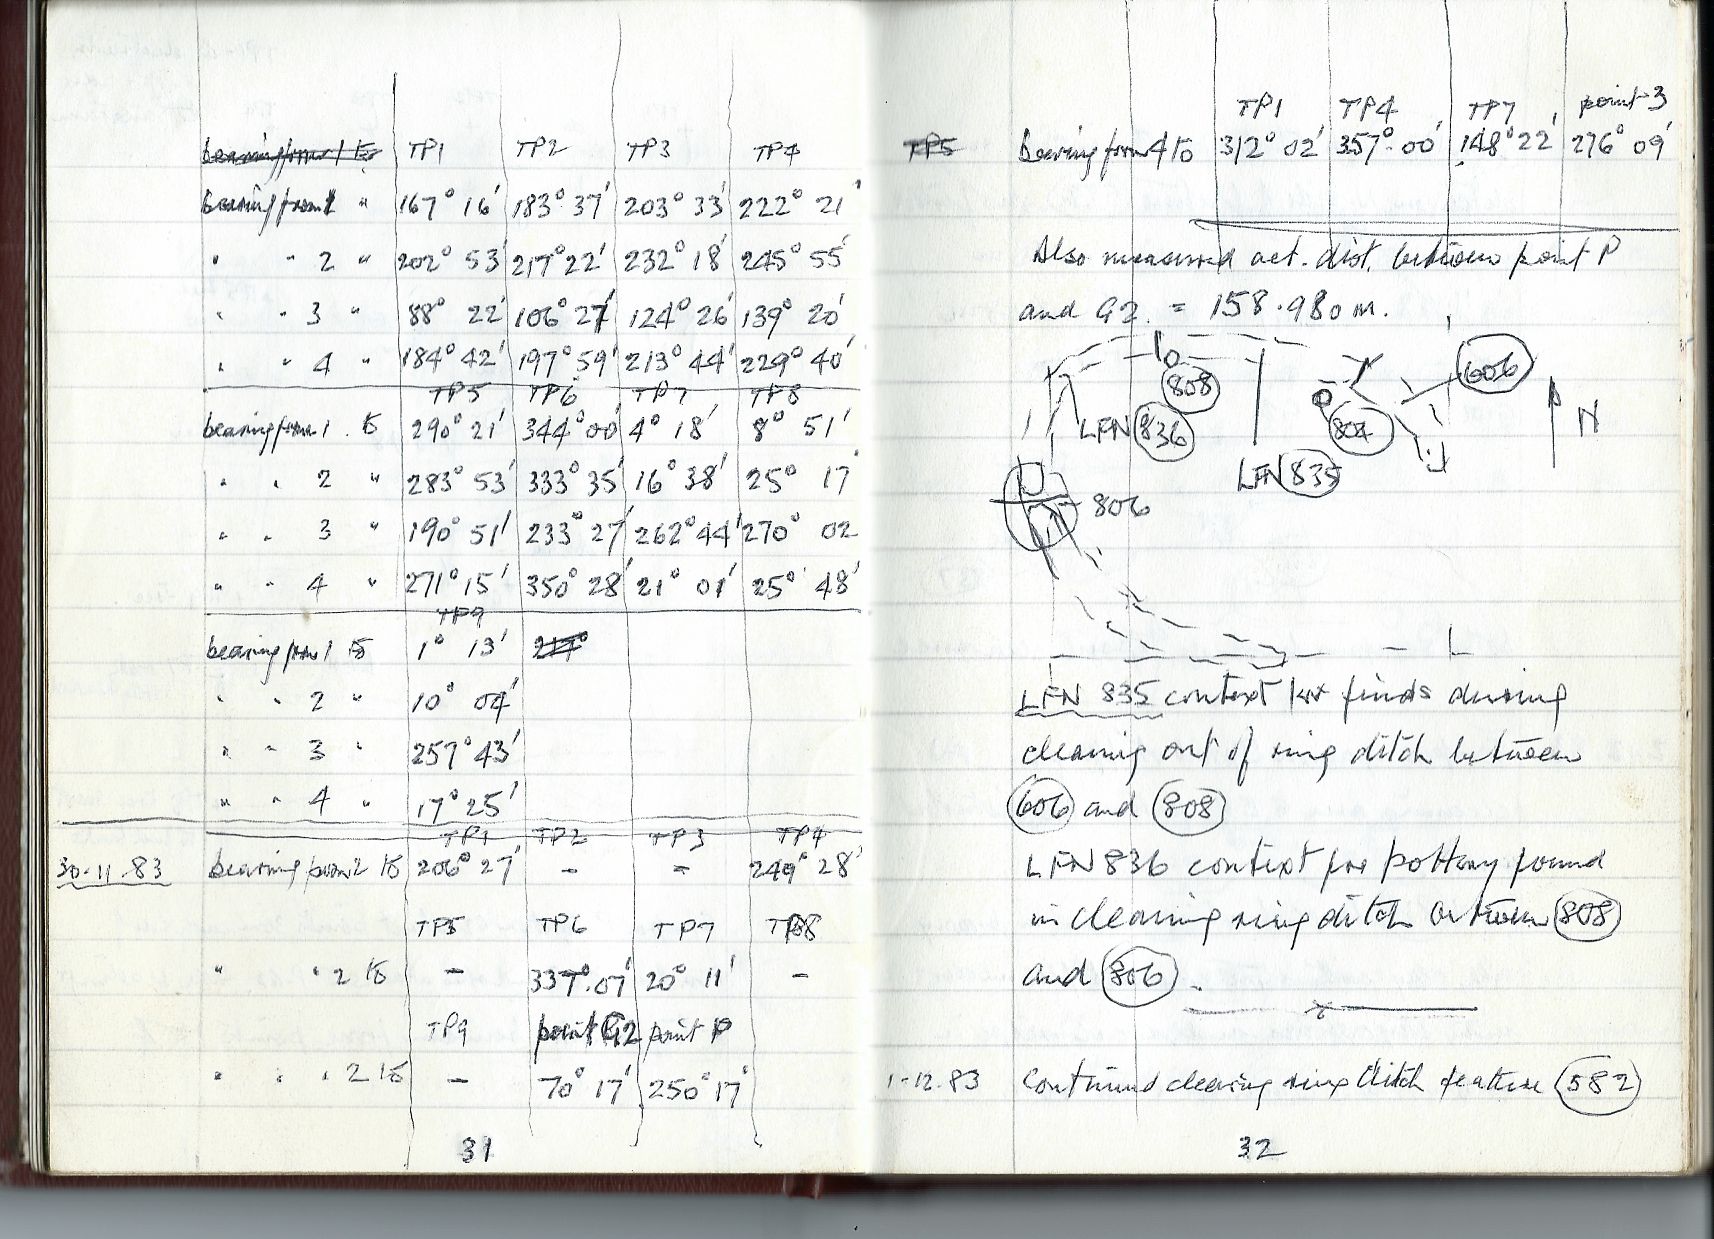 TP1 TP2 TP3 TP4
bearing from 1 " 167° 16' 183° 37' 203° 33' 222° 21'
" " 2 " 202° 53' 217° 22' 232° 18' 245° 55'
" " 3 " 88° 22' 106° 27' 124° 26' 139° 20'
" " 4 " 184° 42' 197° 59' 213° 44' 229° 40'
TP5 TP6 TP7 TP8
bearing from 1 to 290° 21' 344° 00' 4° 18' 8° 51'
" " 2 " 283° 53' 333° 35' 16° 38' 25° 17'
" " 3 " 190° 51' 233° 27' 262° 44' 270° 02
" " 4 " 271° 15' 350° 28' 21° 01' 25° 48'
TP9
bearing from 1 to 1° 13'
" " 2 " 10° 04'
" " 3 " 257° 43'
" " 4 " 17° 25'
TP1 TP2 TP3 TP4
30-11-83 bearing from 2 to 206° 27' - - 249° 28'
TP5 TP6 TP7 TP8
" " 2 to - 337°.07' 20° 11' -
TP9 point G2 point P
" " " 2 to - 70° 17' 250° 17'
31
TP1 TP4 TP7 point 3
TP5 Bearing from 4 to 312° 02' 357° 00' 148° 22' 276° 09'
Also measured act. dist. between point P
and G2 = 158.980 m.
808
606
LFN 836
804
N
LFN 835
806
LFN 835 context for finds during
cleaning out of ring ditch between
606 and 808
LFN 836 context for pottery found
in cleaning ring ditch between 808
and 806.
1-12.83 Continued cleaning ring ditch feature 582
32